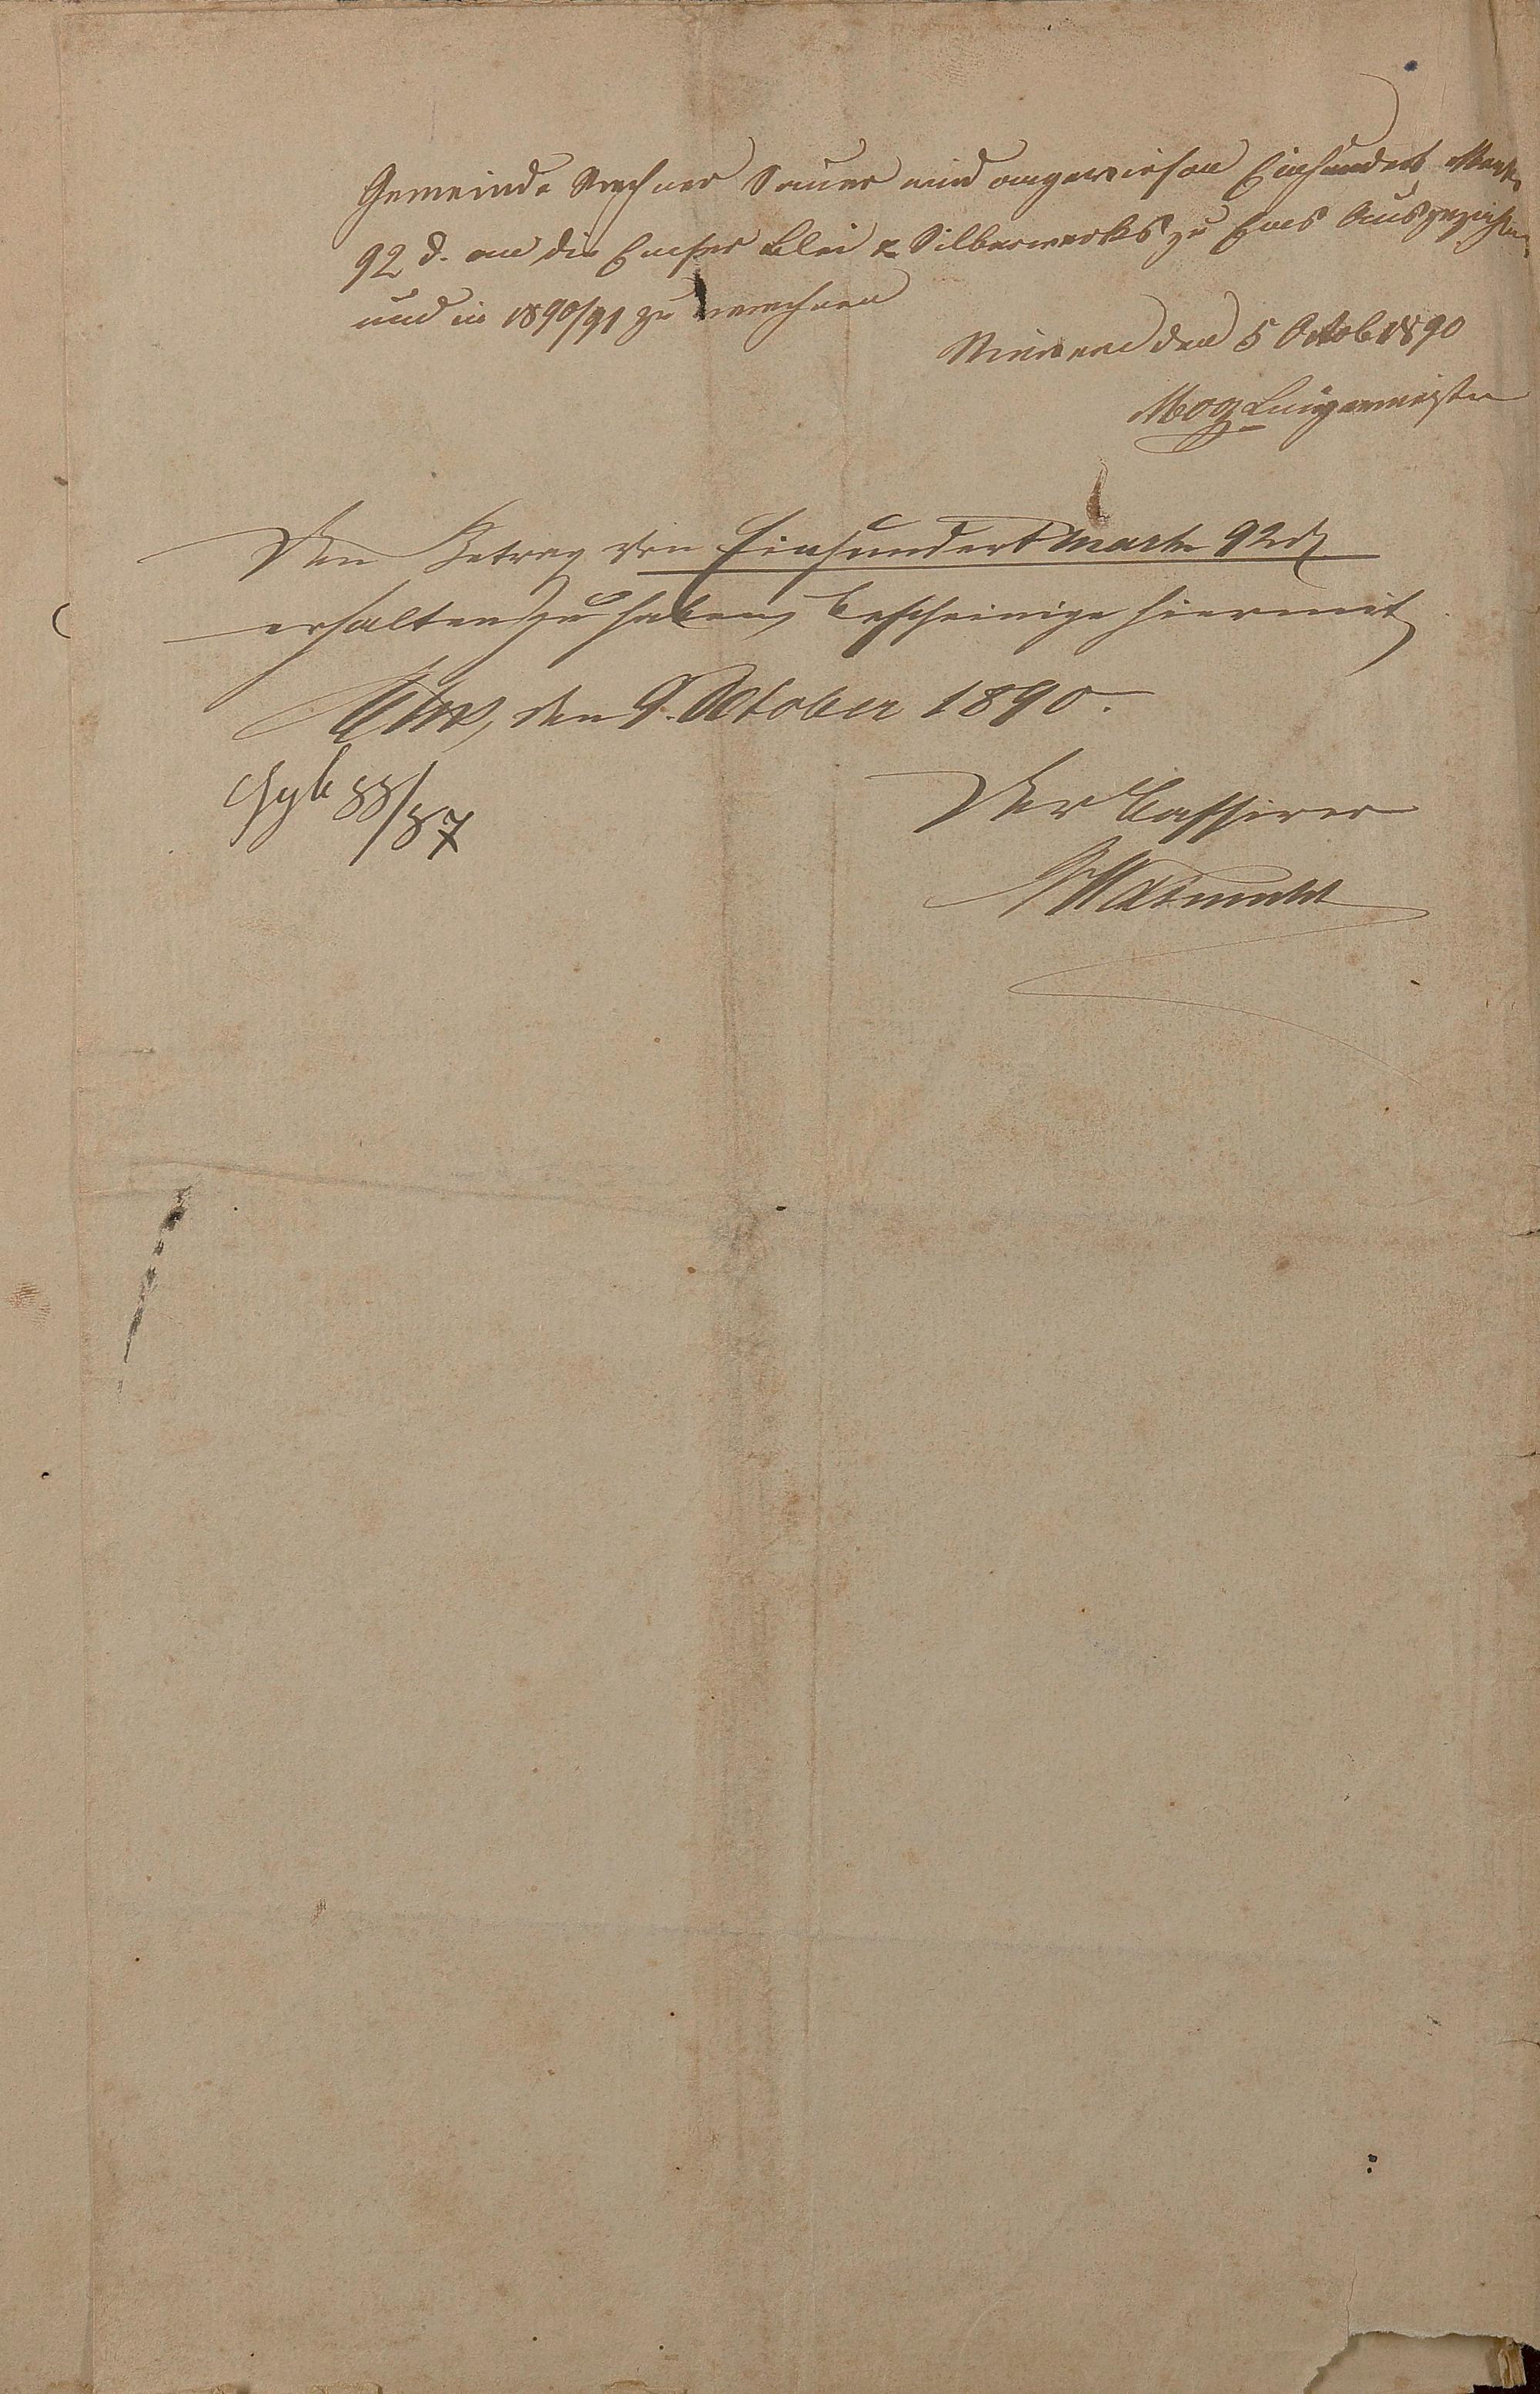 Gemeinde Rechner Sauer wird angewiesen Einhundert Mark
92 d. an die Emser Blei & Silberwerks zu Ems
und in 1890/91 zu verrechnen
den 5 Octob 1890
Bürgermeister
Den Betrag von Einhundert Mark 92 d
erhalten zu haben, bescheinige hiermit
Ems, den 9. October 1890.
Der Cassirer